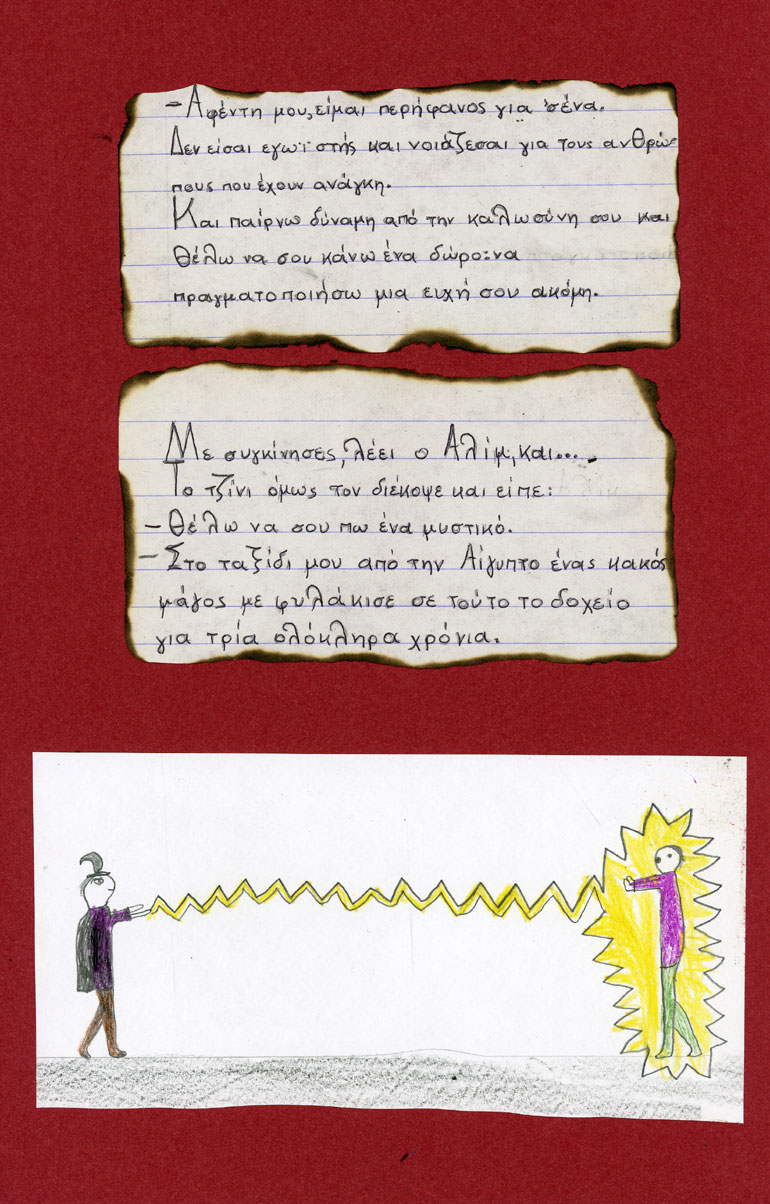 - Αφέντη μου, είμαι περήφανος για 'σένα.
Δεν είσαι εγωιστής και νοιάζεσαι για τους ανθρώ-
πους που έχουν ανάγκη.
Και παίρνω δύναμη από την καλωσύνη σου και
θέλω να σου κάνω ένα δώρο: να
πραγματοποιήσω μια ευχή σου ακόμη.
Με συγκίνησες, λέει ο Αλίμ, και....
Το τζίνι όμως τον διέκοψε και είπε:
- Θέλω να σου πω ένα μυστικό.
- Στο ταξίδι μου από την Αίγυπτο ένας κακός
μάγος με φυλάκισε σε τούτο το δοχείο
για τρία ολόκληρα χρόνια.